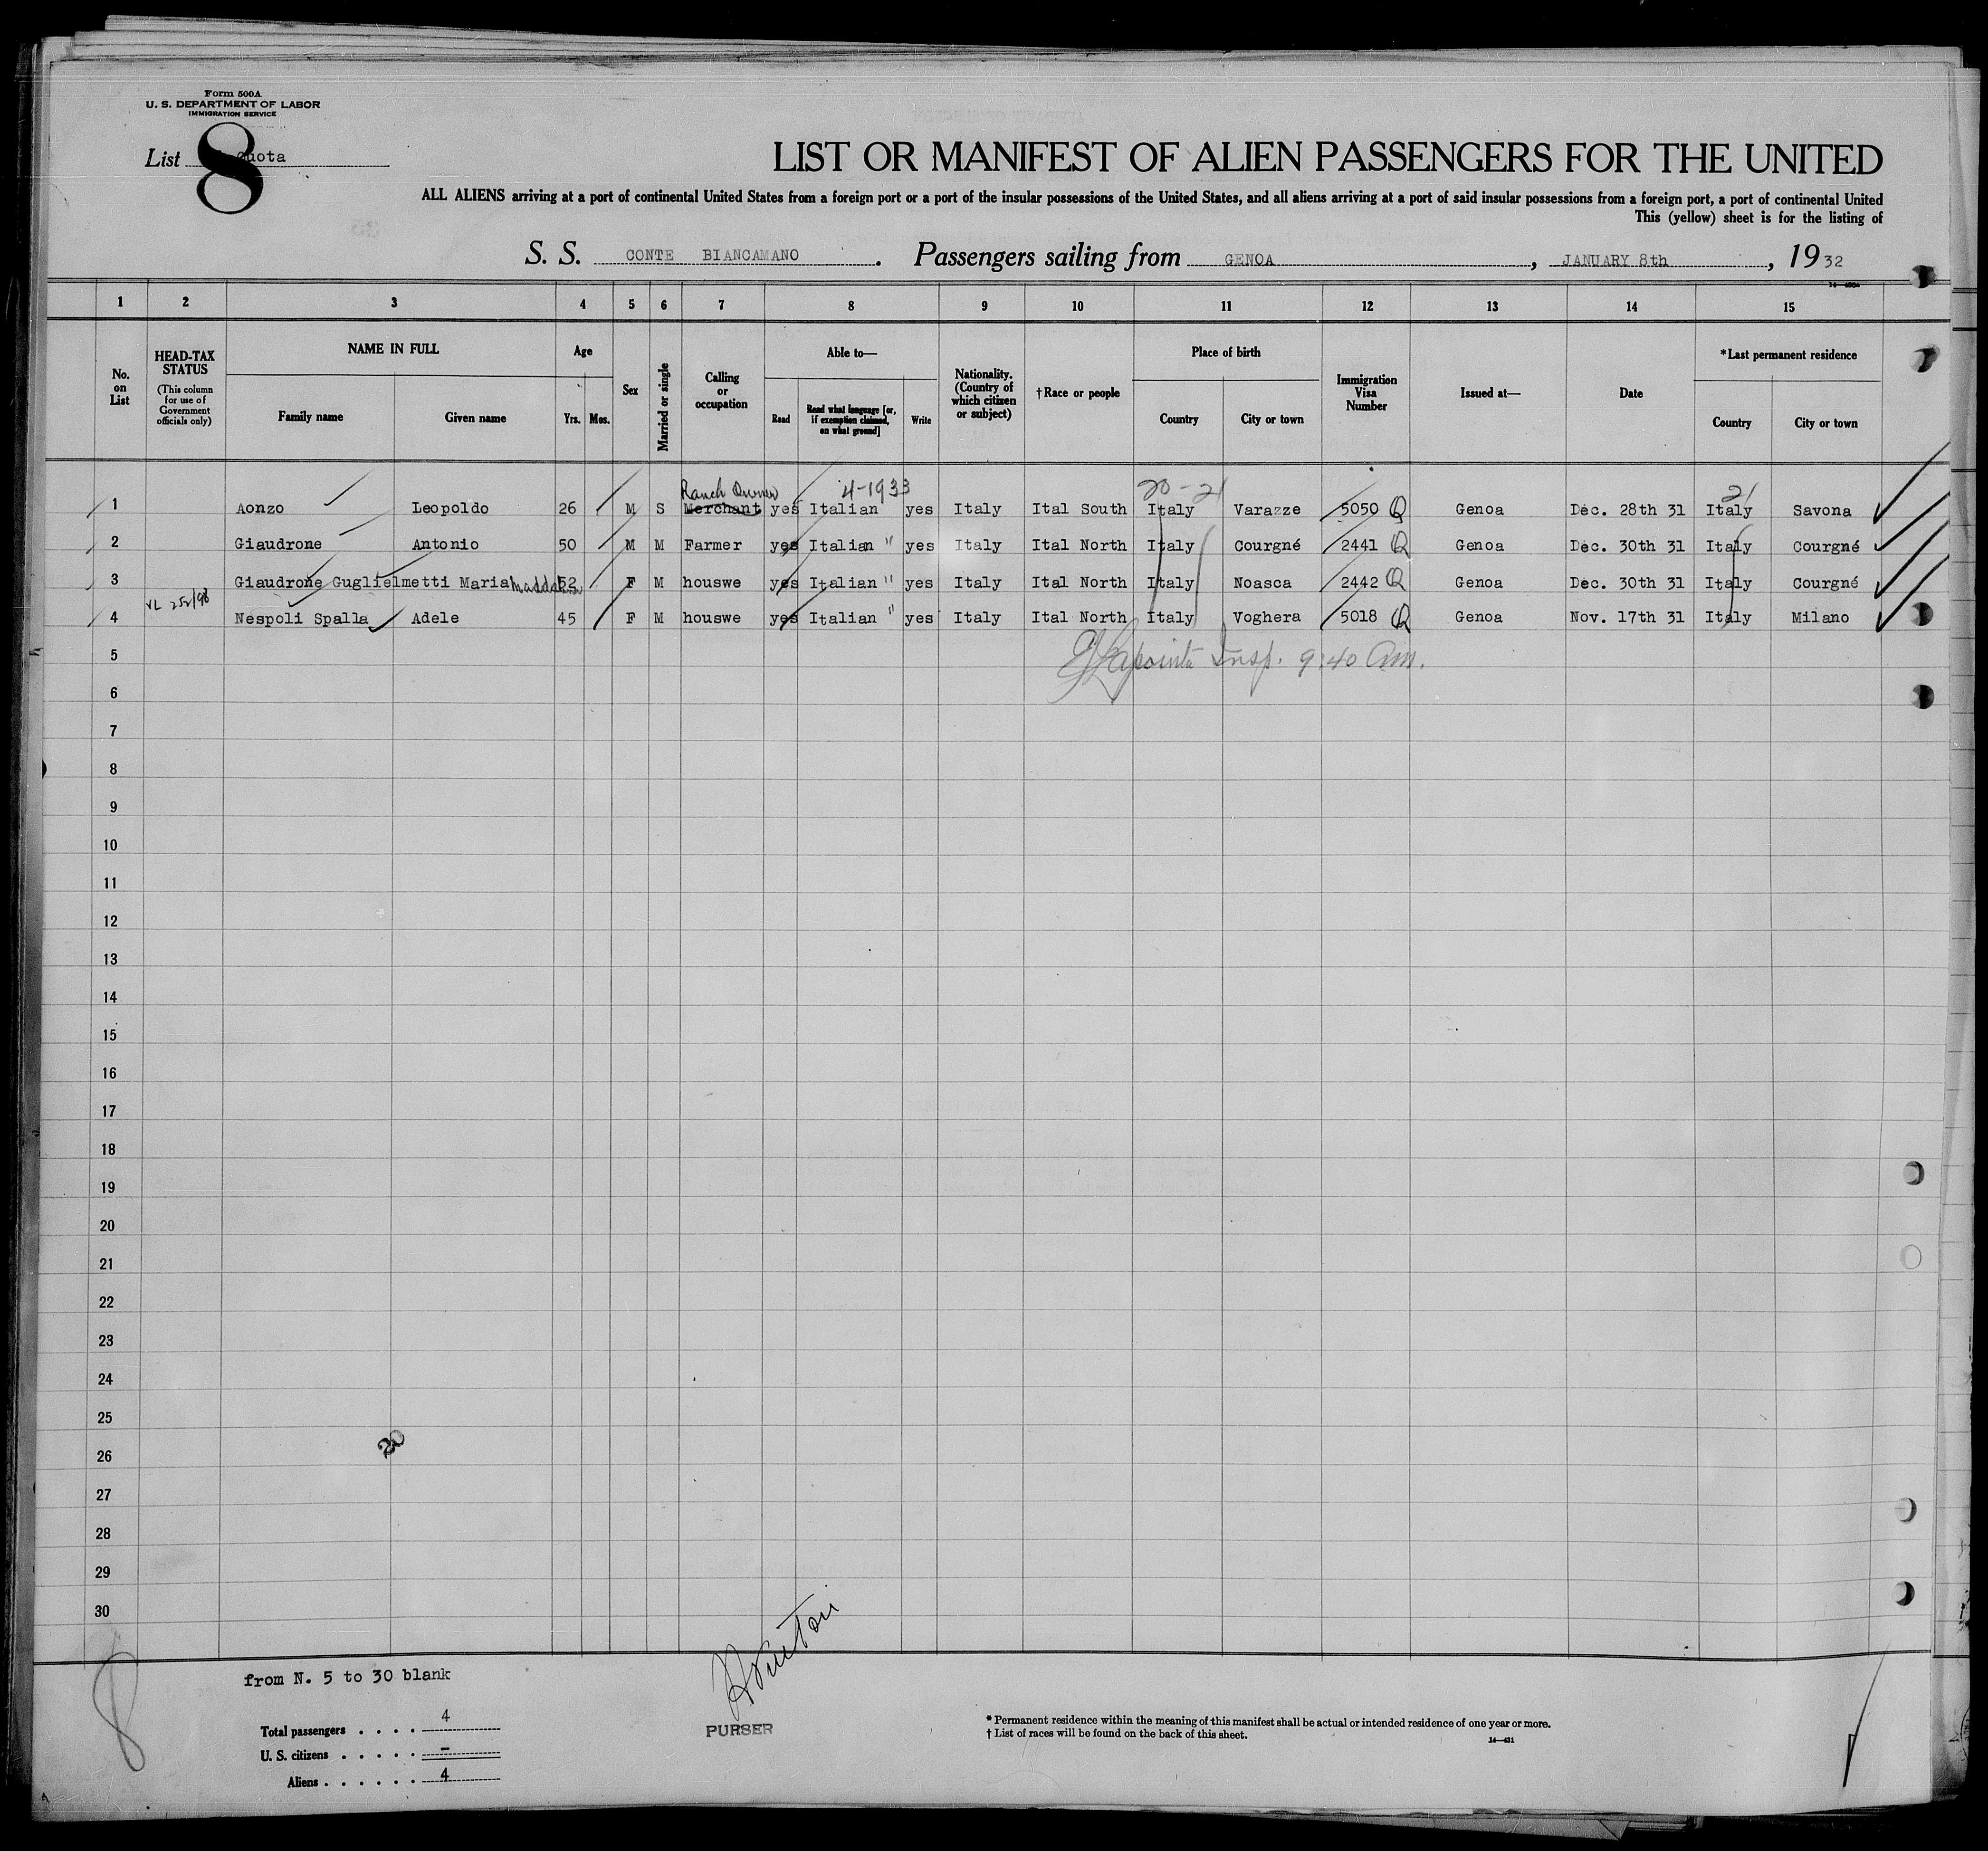 Form 500A
U. S. DEPARTMENT OF LABOR
IMMIGRATION SERVICE
List Quota
8
LIST OR MANIFEST OF ALIEN PASSENGERS FOR THE UNITED
ALL ALIENS arriving at a port of continental United States from a foreign port or a port of the insular possessions of the United States, and all aliens arriving at a port of said insular possessions from a foreign port, a port of continental United
This (yellow) sheet is for the listing of
S. S. CONTE BIANCAMANO. Passengers sailing from GENOA, JANUARY 8th, 1932
1 2 3 4 5 6 7 8 9 10 11 12 13 14 15
No. on List
HEAD-TAX STATUS
(This column for use of Government officials only)
NAME IN FULL
Family name Given name
Age
Yrs. Mos.
Sex
Married or single
Calling or occupation
Able to—
Read
Read what language [or, if exemption claimed, on what ground]
Write
Nationality. (Country of which citizen or subject)
†Race or people
Place of birth
Country City or town
Immigration Visa Number
Issued at—
Date
*Last permanent residence
Country City or town
Ranch Owner 4-1933 20-21 21
1 Aonzo Leopoldo 26 M S Merchant yes Italian yes Italy Ital South Italy Varazze 5050 Q Genoa Dec. 28th 31 Italy Savona
2 Giaudrone Antonio 50 M M Farmer yes Italian " yes Italy Ital North Italy Courgné 2441 Q Genoa Dec. 30th 31 Italy Courgné
3 Giaudrone Guglielmetti Maria 52 F M houswe yes Italian " yes Italy Ital North Italy Noasca 2442 Q Genoa Dec. 30th 31 Italy Courgné
4 Nespoli Spalla Adele 45 F M houswe yes Italian " yes Italy Ital North Italy Voghera 5018 Q Genoa Nov. 17th 31 Italy Milano
5 Lapointe Insp. 9:40 am.
6
7
8
9
10
11
12
13
14
15
16
17
18
19
20
21
22
23
24
25
20
26
27
28
29
30
from N. 5 to 30 blank
8
Total passengers . . . . 4
U. S. citizens . . . . . —
Aliens . . . . . . 4
PURSER
* Permanent residence within the meaning of this manifest shall be actual or intended residence of one year or more.
† List of races will be found on the back of this sheet.
14—431